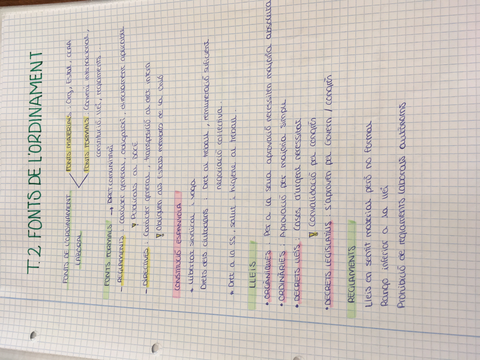 T.2 FONTS DE L'ORDINAMENT
FONTS DE L'ORDENAMENT LABORAL
FONTS MATERIALS: Org, Estat, CCAA
FONTS FORMALS: Conveni internacional, constitució, llei, reglaments
FONTS FORMALS → Dret comunitari
- REGLAMENTS: Caràcter general, obligació directament aplicable
Publicades al DOCE
- DIRECTIVES: Caràcter general, transposició al dret intern
Obliguen als Estats membres de la UE
CONSTITUCIÓ ESPANYOLA
• Llibertat sindical i vaga
Drets dels ciutadans: Dret al treball, remuneració suficient, negociació col·lectiva
• Dret a la SS, salut i higiene al treball
LLEIS
• ORGÀNIQUES: Per a la seva aprovació necessiten majoria absoluta
• ORDINÀRIES: Aprovació per majoria simple
• DECRETS LLEIS: Casos d'urgent necessitat
Convalidació pel congrés
• DECRETS LEGISLATIUS: S'aproven pel Govern / Congrés
REGLAMENTS
Lleis en sentit material però no formal
Rang inferior a la llei
Prohibició de reglaments laborals autònoms